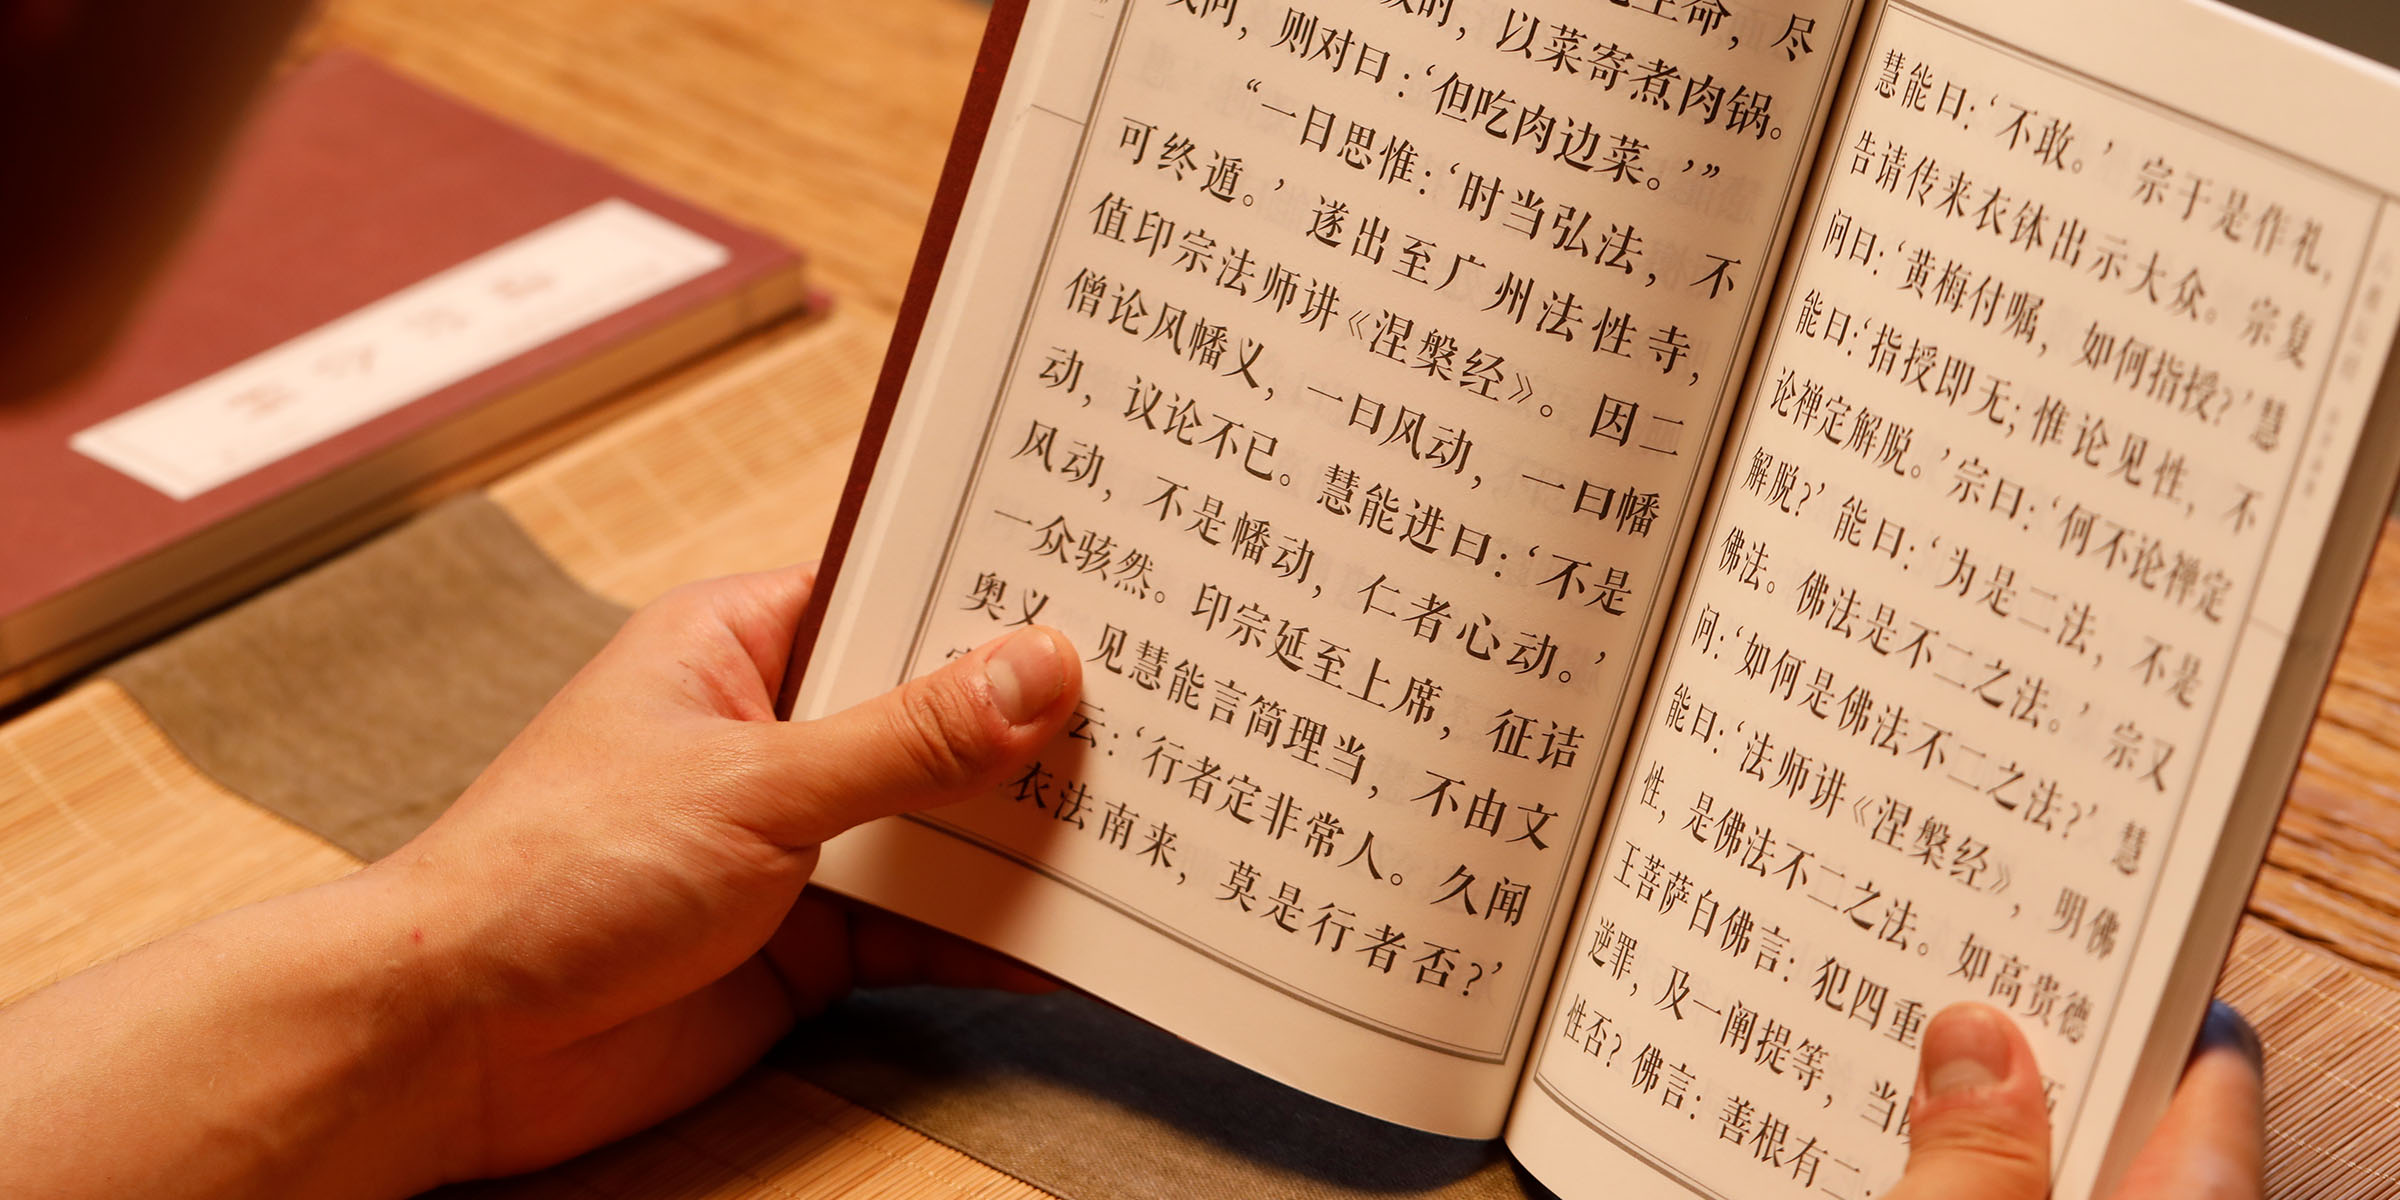 生命，尽
时，以菜寄煮肉锅。
问，则对曰：‘但吃肉边菜。’”
“一日思惟：‘时当弘法，不
可终遁。’遂出至广州法性寺，
值印宗法师讲《涅槃经》。因二
僧论风幡义，一曰风动，一曰幡
动，议论不已。慧能进曰：‘不是
风动，不是幡动，仁者心动。’
一众骇然。印宗延至上席，征诘
奥义，见慧能言简理当，不由文
云：‘行者定非常人。久闻
衣法南来，莫是行者否？’
慧能曰：‘不敢。’宗于是作礼，
告请传来衣钵出示大众。宗复
问曰：‘黄梅付嘱，如何指授？’慧
能曰：‘指授即无；惟论见性，不
论禅定解脱。’宗曰：‘何不论禅定
解脱？’能曰：‘为是二法，不是
佛法。佛法是不二之法。’宗又
问：‘如何是佛法不二之法？’慧
能曰：‘法师讲《涅槃经》，明佛
性，是佛法不二之法。如高贵德
王菩萨白佛言：犯四重
逆罪，及一阐提等，当
性否？佛言：善根有二